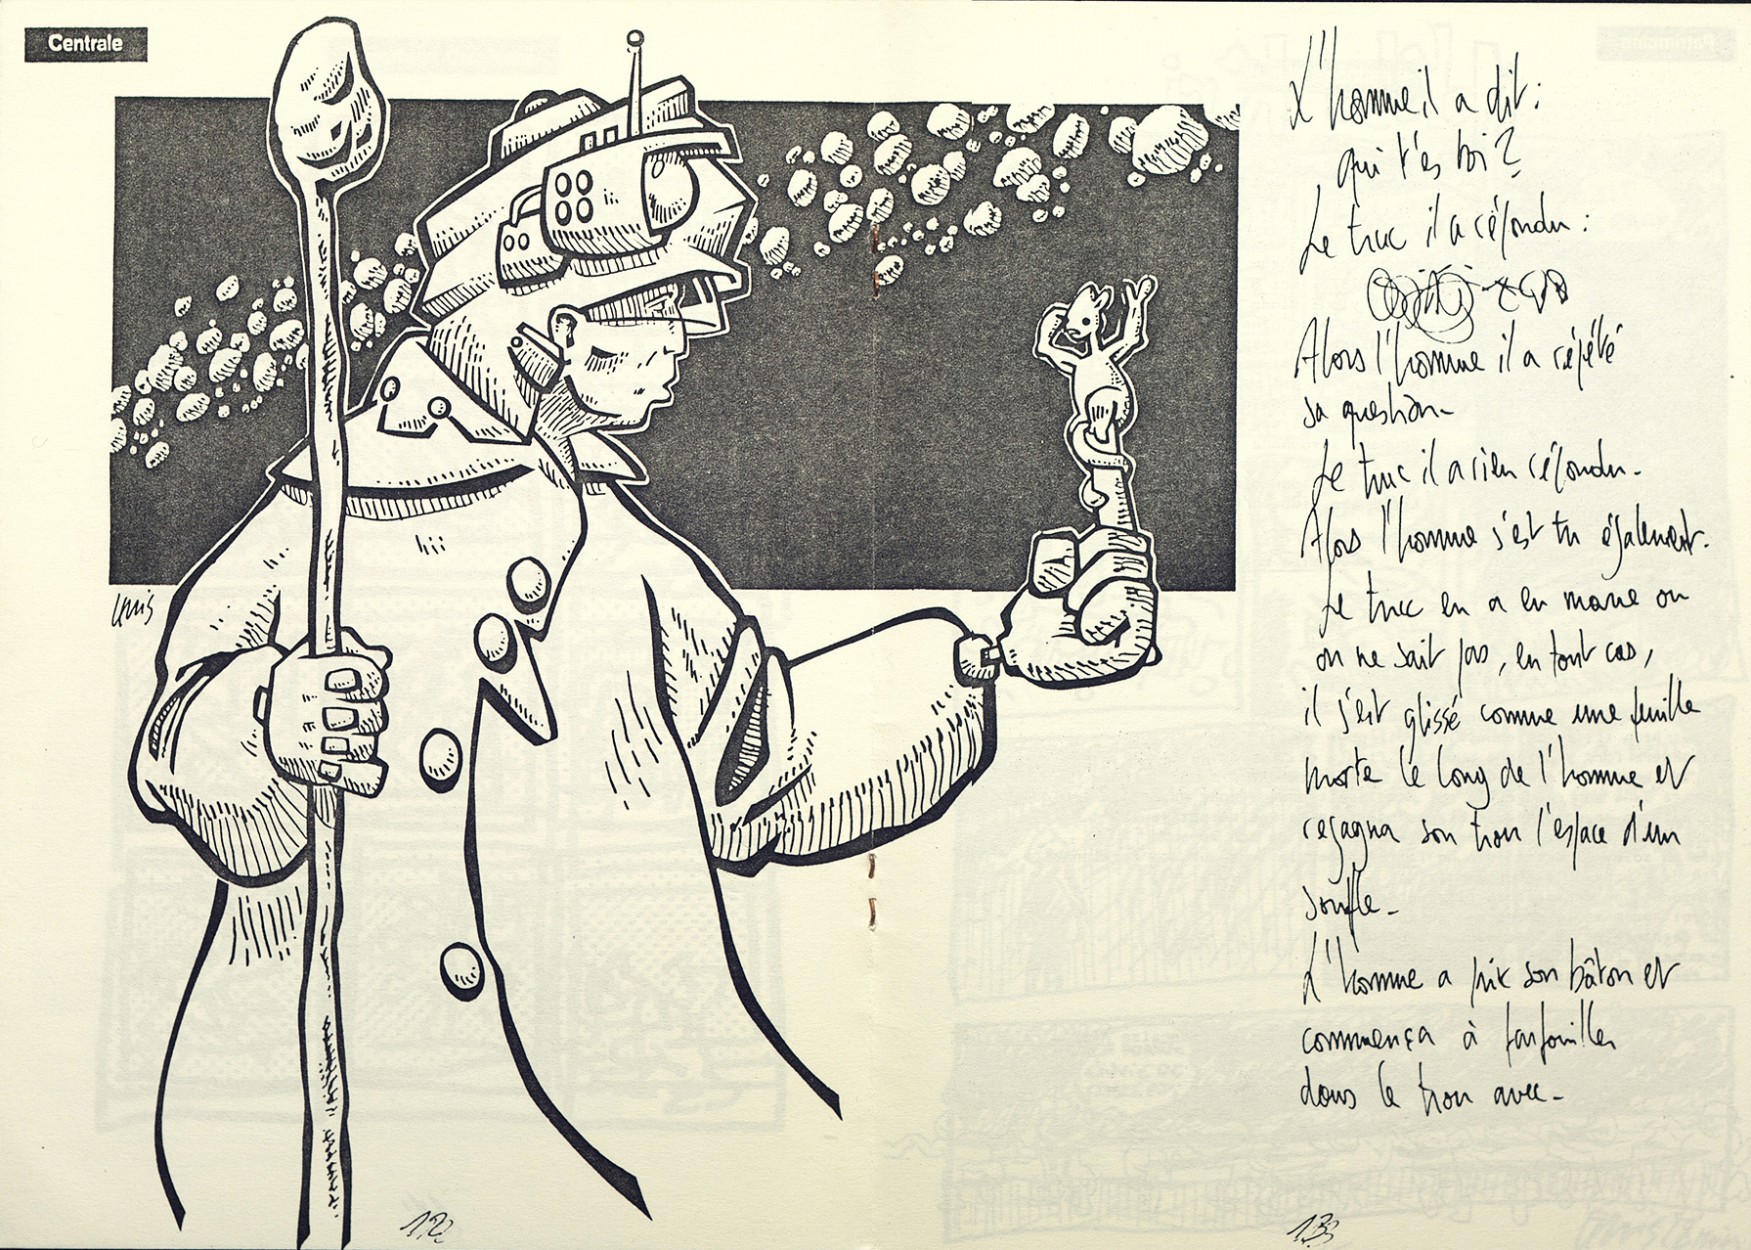 Centrale
L'homme il a dit :
qui t'es toi ?
Le truc il a répondu :
Alors l'homme il a répété
sa question -
Le truc il a rien répondu -
Alors l'homme s'est tu également.
Le truc en a eu marre ou
on ne sait pas, en tout cas,
il s'est glissé comme une feuille
morte le long de l'homme et
regagna son trou l'espace d'un
souffle -
L'homme a pris son bâton et
commença à farfouiller
dans le trou avec -